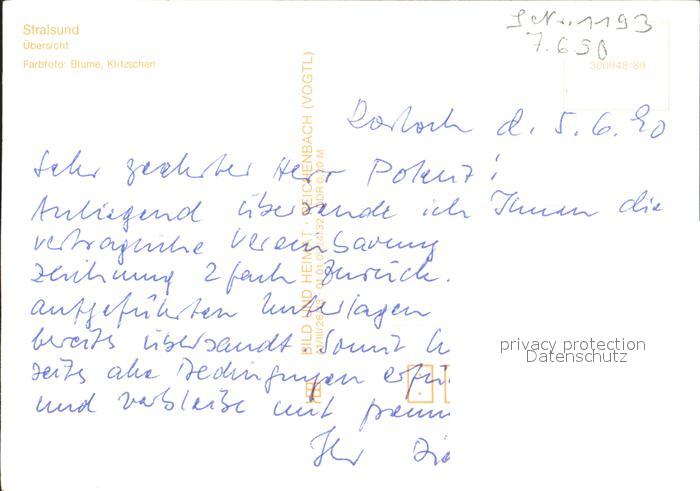 Stralsund
Übersicht
Farbfoto: Blume, Klitzschen
1193
7.6.90
300948/89
BILD UND HEIMAT · REICHENBACH (VOGTL)
Rostock d. 5.6.90
Sehr geehrter Herr Polenz!
Anliegend übersende ich Ihnen die
vertragliche Vereinbarung
zeichnung 2fach zurück.
aufgeführten Unterlagen
bereits übersandt Somit
seits alle Bedingungen erfü
und verbleibe mit freun
Ihr
privacy protection
Datenschutz